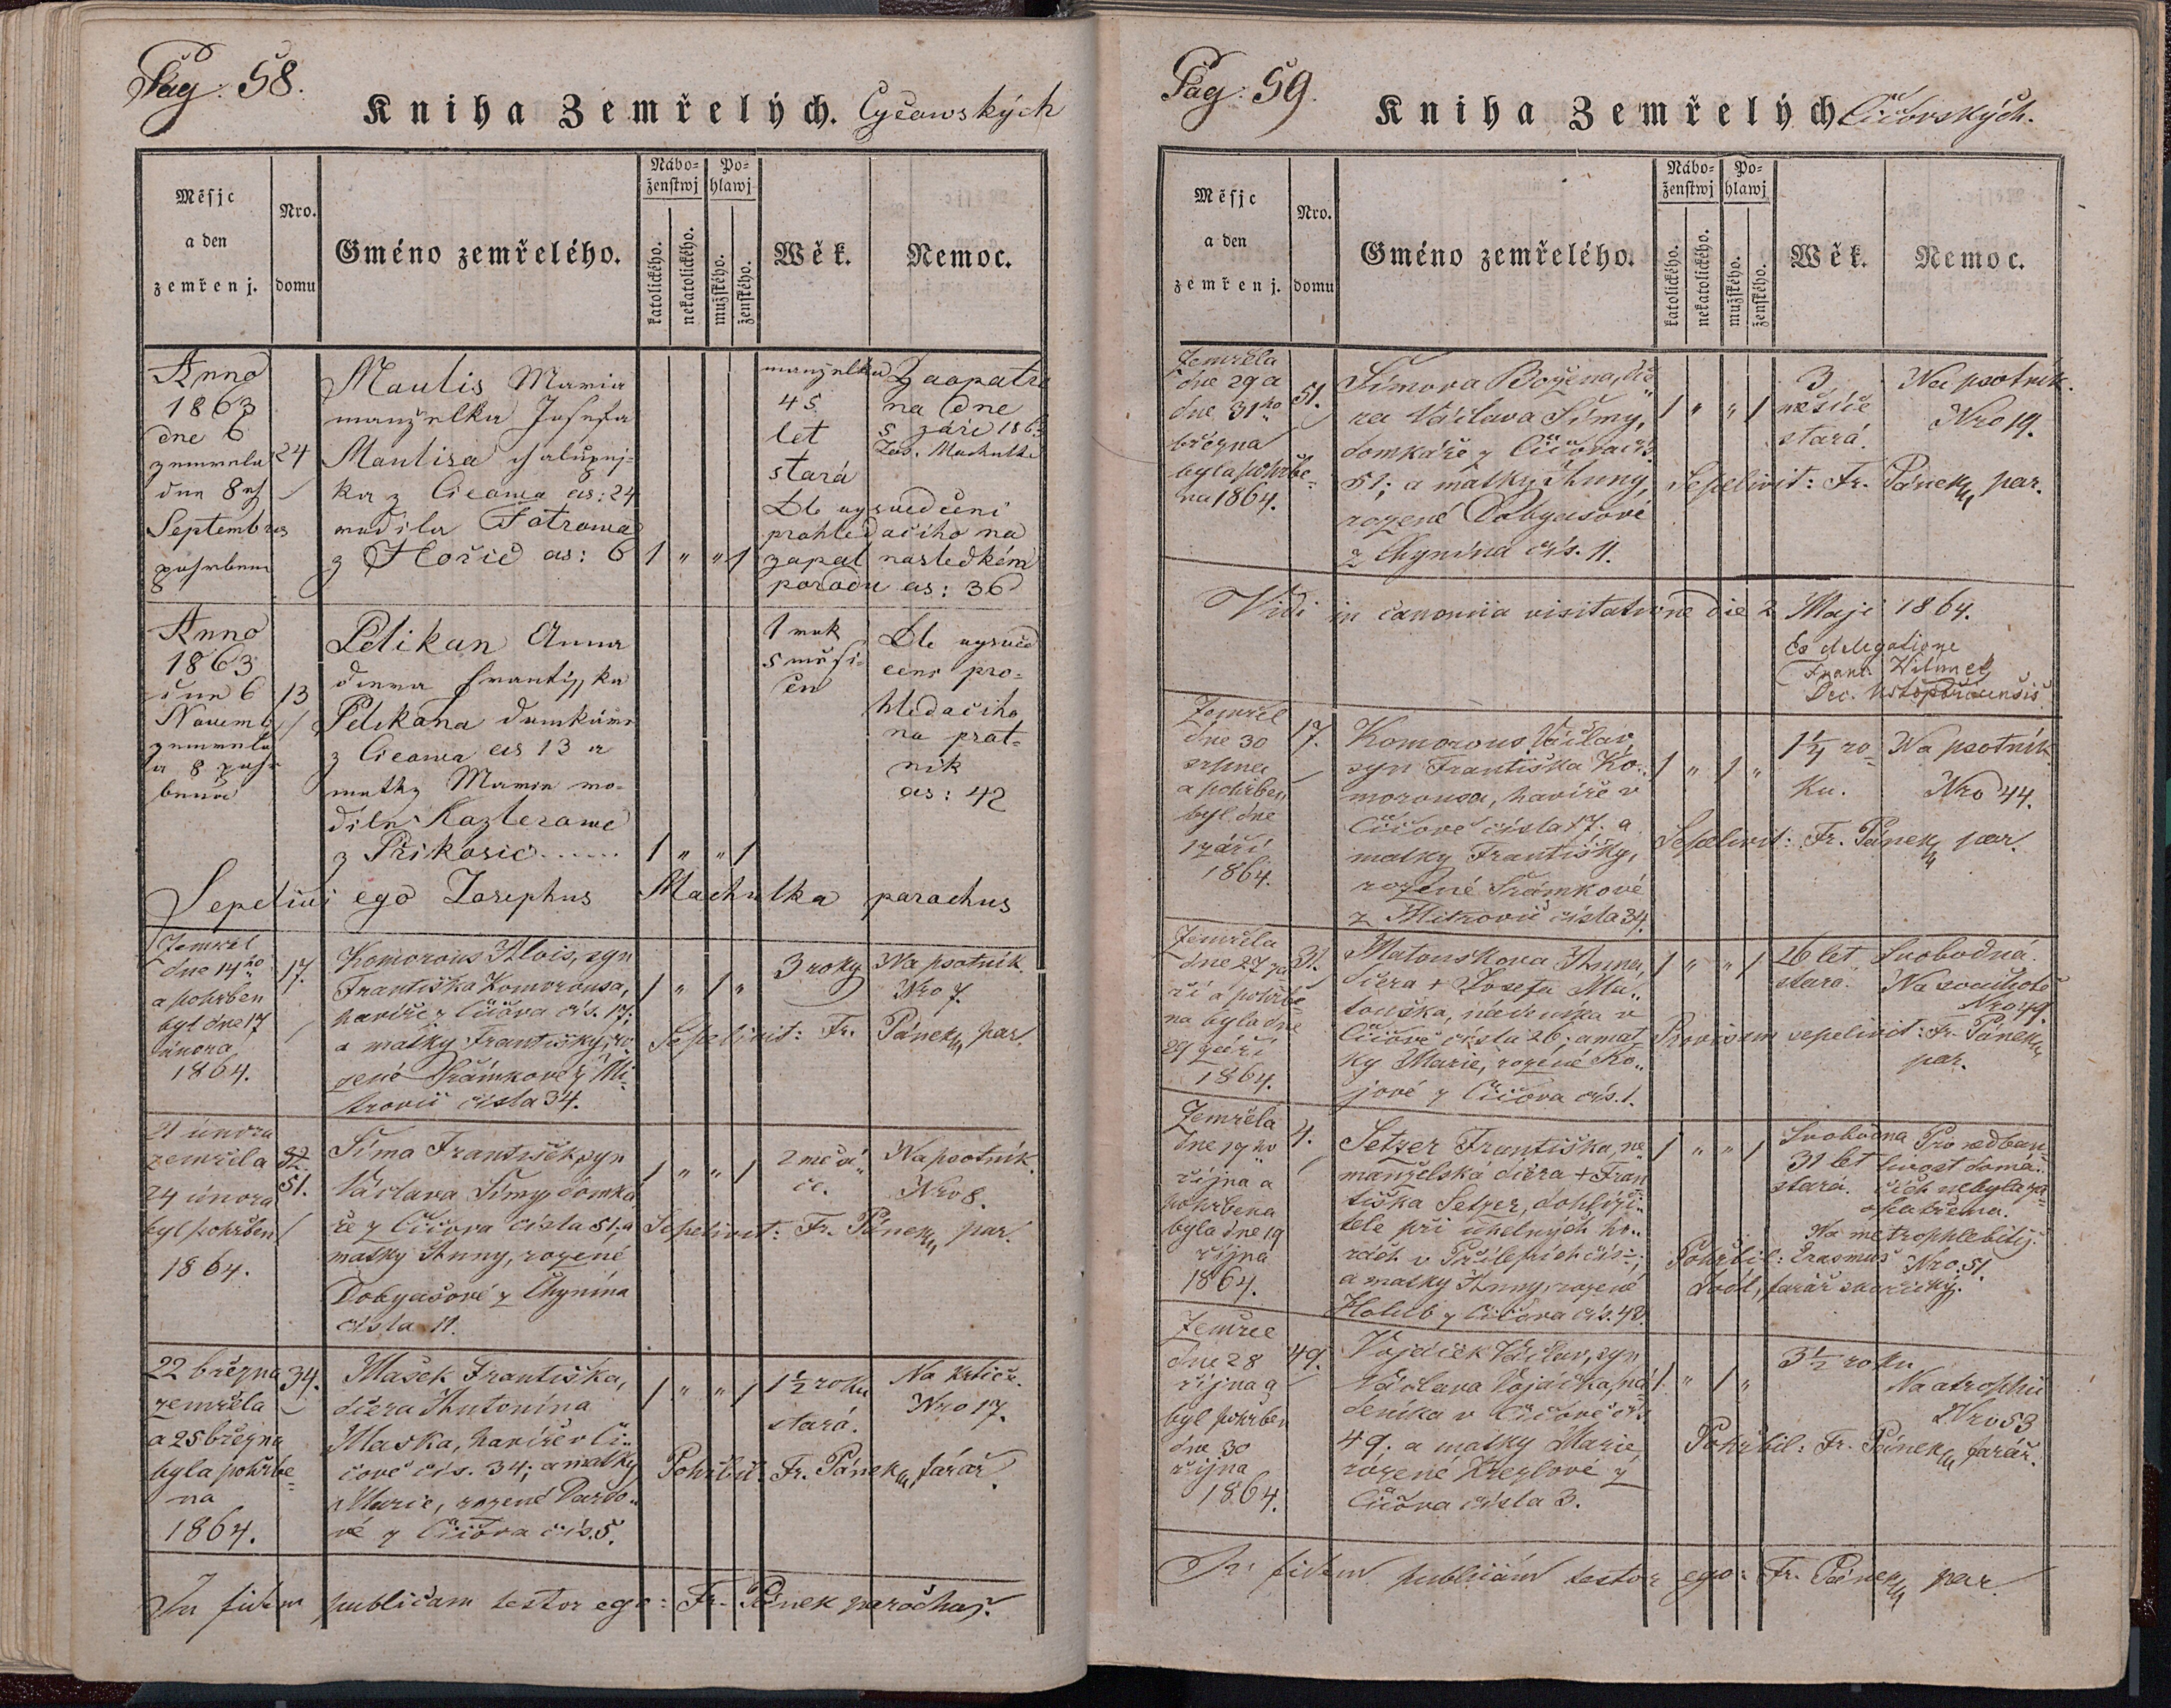 Pag. 58.
Kniha Zemřelých. Cyčawských
Měsjc a den zemřenj.
Nro. domu
Gméno zemřelého.
Nábo=ženstwj
katolického.
nekatolického.
Po=hlawj
mužského.
ženského.
Wěk.
Nemoc.
Anno
1863
dne 6
zemrela
dne 8
Septembris
pohrbena
24
Maulis Maria
manzelka Josefa
Maulisa chalupnj-
ka z Cicowa cis: 24
rodila Fotrowa
z Hořic cis: 6
1 " " 1
manzelka
45
let
stará
Zaopatre
na dne
5 záře 1863
Jos. Machulka
Dle vysvedčeni
prohledačiho na
zapal nasledkém
porodu cis: 36
Anno
1863
dne 6
Novemb
zemrela
a 8 pohr
bena
13
Pelikan Anna
dcera Frantisska
Pelikana domkáre
z Cicowa cis 13 a
matky Marie ro-
dile Kazlerowe
z Přikosic
1 " " 1
1 rok
5 měsi-
cu
Dle vysved
ceni pro=
hledačiho
na psot-
nik
cis: 42
Sepelivi ego Josephus Machulka parochus
Zemřel
dne 14ho
a pohřben
byl dne 17
února
1864.
17.
Komorous Alois, syn
Františka Komorousa,
havíře z Číčova čís. 17;
a matky Františky, ro
zené Šrámkové z Mi-
trovic čísla 34.
1 " 1 "
3 roky
Na psotník.
Nro 7.
Sepelivit: Fr. Pánek par.
21 února
zemřela
24 února
byl pohřben
1864.
32.
51.
Šíma František syn
Václava Šímy, domká
ře z Číčova čísla 51; a
matky Anny, rozené
Dobyašové z Chynína
čísla 11.
1 " " 1
2 měsí"
ce.
Na psotník.
Nro 8.
Sepelivit: Fr. Pánek par.
22 března
zemřela
a 25 března
byla pohřbe=
na
1864.
34.
Mašek Františka,
dčera Antonína
Maška, havíře v Čí-
čově čís. 34; a matky
Marie, rozené Pardo..
vé z Číčova čís. 5.
1 " " 1
1 1/2 roku
stará.
Na krtice.
Nro 17.
Pohřbil: Fr. Pánek, farář.
In fidem publicam testor ego: Fr. Pánek parochus.
Pag: 59.
Kniha Zemřelých Číčovských.
Měsjc a den zemřenj.
Nro. domu
Gméno zemřelého.
Nábo=ženstwj
katolického.
nekatolického.
Po=hlawj
mužského.
ženského.
Wěk.
Nemoc.
Zemřela
dne 29 a
dne 31ho
března
byla pohřbe=
na 1864.
51.
Šímova Božena, dce
ra Václava Šímy,
domkáře z Číčova čís.
51; a matky Anny,
rozené Dobyasové
z Chynína čís. 11.
1 " " 1
3
měsíce
stará.
Na psotník.
Nro 19.
Sepelivit: Fr. Pánek par.
Vidi in canonica visitatione die 2 Maji 1864.
Ex delegatione
Dec.
Zemřel
dne 30
srpna
a pohřben
byl dne
1 září
1864.
17.
Komorous Václav
syn Františka Ko..
morousa, havíře v
Číčově čísla 17; a
matky Františky,
rozené Šrámkové
z Mitrovic čísla 34.
1 " 1 "
1 1/4 ro=
ku.
Na psotník
Nro 44.
Sepelivit: Fr. Pánek par.
Zemřela
dne 27 zá
ří a pohřbe=
na byla dne
29 září
1864.
31.
Matouskova Anna,
dčera + Josefa Ma..
touška, nádenika v
Číčově čísla 26; a mat
ky Marie, rozené Ko..
jové z Číčova čís. 1.
1 " " 1
26 let
stará.
Svobodná.
Na souchotě
Nro 49.
Provisam sepelivit: Fr. Pánek
par.
Zemřela
dne 17ho
října a
pohřbena
byla dne 19
října
1864.
4.
Setzer Františka, ne
manželská dčera + Fran
tiška Setzer, dohlíži-
tele při uhelných ho..
rách v Přílepích čís -;
a matky Anny, rozené
Holub z Číčova čís. 42.
1 " " 1
Svobodna
31 let
stará.
Pro nedban
livost domá..
cích nebyla za
opatřena.
Na metrophlebitij.
Nro. 51.
Pohřbil: Erasmus
farář skořický.
Zemřel
dne 28
října a
byl pohřben
dne 30
října
1864.
49.
Vojáček Václav, syn
Václava Vojáčka, ná
deníka v Číčově čís.
49; a matky Marie
rozené Krezlové z
Číčova čísla 3.
1 " 1 "
3 1/2 roku
Na atrophii
Nro 53
Pohřbil: Fr. Pánek, farář.
In fidem publicam testor ego: Fr. Pánek par.